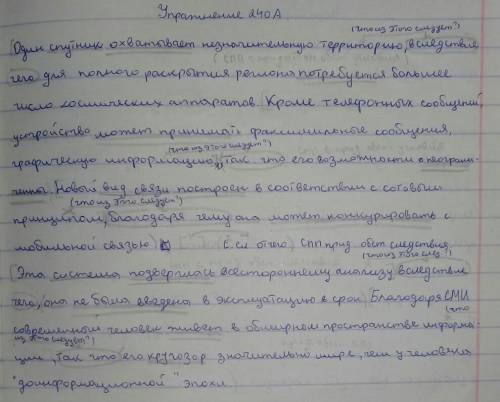 Упражнение 240А
(что из этого следует?)
Один спутник охватывает незначительную территорию, вследствие
чего для полного раскрытия региона потребуется большее
число космических аппаратов. Кроме телефонных сообщений,
устройство может принимать факсимильные сообщения,
(что из этого следует?)
графическую информацию, так что его возможности
Новый вид связи построен в соответствии с сотовым
(что из этого следует?)
принципом, благодаря чему она может конкурировать с
мобильной связью СПП прид. обст. следствия,
(что из этого след.?)
Эта система подверглась всестороннему анализу вследствие
чего, она не была введена в эксплуатацию в срок. Благодаря СМИ
(что
современный человек живет в обширном пространстве информа-
из этого следует?)
ции, так что его кругозор значительно шире, чем у человека
"доинформационной" эпохи.